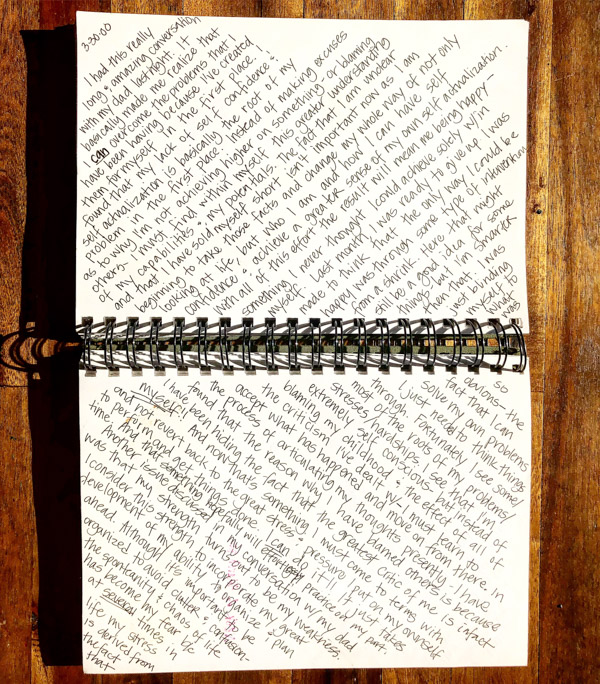 3·30·00
I had this really
long & amazing conversation
with my dad last night. It
basically made me realize that
I can overcome the problems that I
have been having because I've created
them for myself in the first place! I
found that my lack of self confidence &
self actualization is basically the root of my
problem in the first place. Instead of making excuses
as to why I'm not achieving higher on something or blaming
others - I must find within myself this greater understanding
of my capabilities & my potentials. The fact that I am unclear
and that I have sold myself short isn't important now as I am
beginning to take those facts and change my whole way of not only
looking at life, but who I am and how I can have self
confidence & achieve a greater sense of my own self actualization.
with all of this effort the result will mean me being happy-
something I never thought I could achieve solely w/in
myself. Last month I was ready to give up. I was
made to think that the only way I could be
happy was through some type of intervention
from a shrink. Here that might
still be a good idea for some
things - but I'm smarter
than that. I was
just blinding
myself to
what
was
so
obvious - the
fact that I can
solve my own problems
I just need to think things
through. Fortunately I see some
most of the roots of my problems/
stresses/hardships. I see that I'm
extremely self conscious - but instead of
blaming my childhood & the effect of all of
the criticism I've dealt w/- I must learn to
accept what has happened and move on from there. In
the process of articulating my thoughts presently, I have
found that the reason why I have blamed others is because
I have been hiding the fact that the greatest critic of me is infact
myself! And now that's something I must come to terms with
and not revert back to the great stress & pressure I put on my ownself
to perform and get things done. I can do it! It just takes
time. And that something really will practice on my part.
Another issue discussed in my conversation w/ my dad
was that my strength turns out to be my weakness.
I consider this strength, to incorporate my great
development of my ability to organize & plan
ahead. Although it's important to be
organized to avoid clutter & confusion-
the spontanuity & chaos of life
has become my fear &
at several times in
life my stress
is derived from
the fact
that